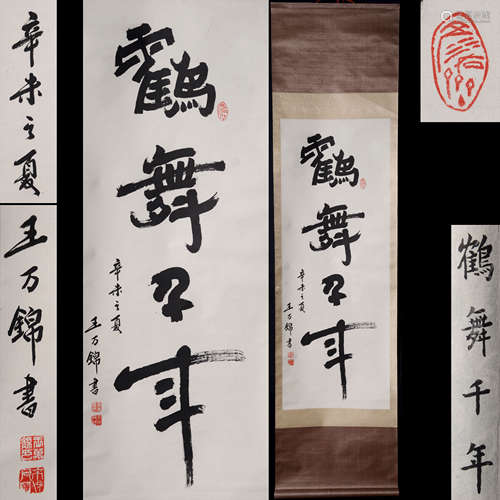 辛未之夏
王万錦書
鶴舞千年
辛未之夏
王万錦書
鶴舞千年
辛未之夏
王万錦書
鶴舞千年